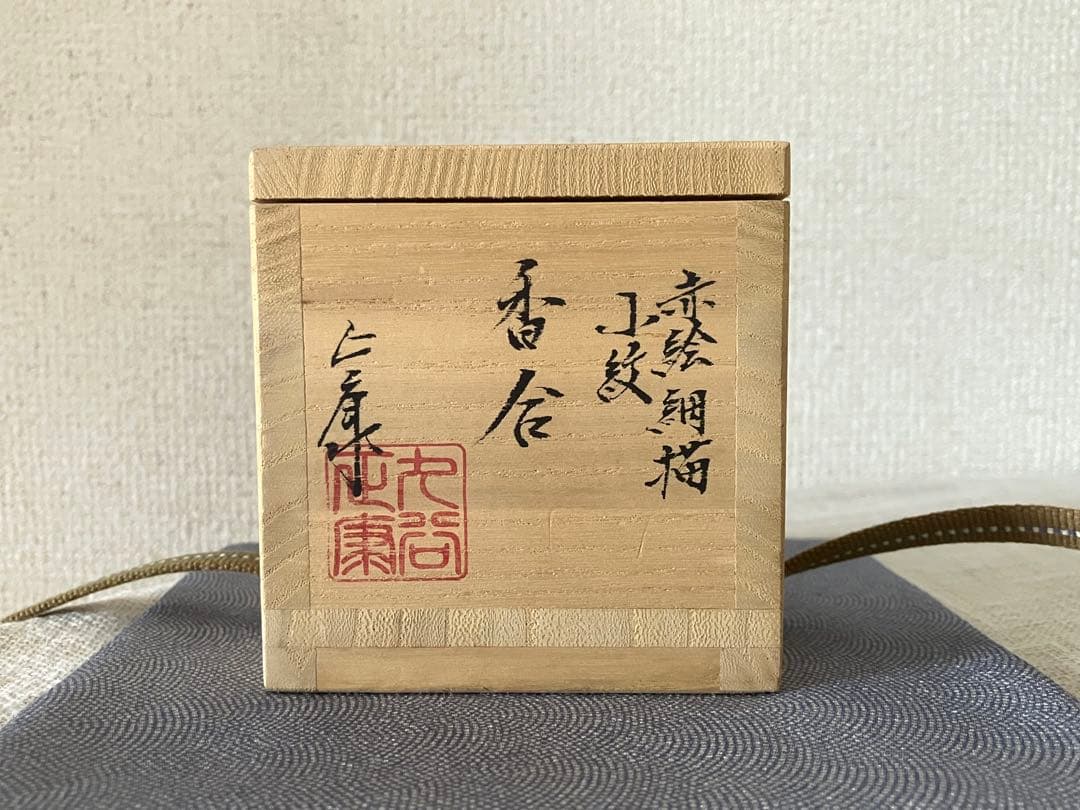 赤絵細描
小紋
香合
九谷